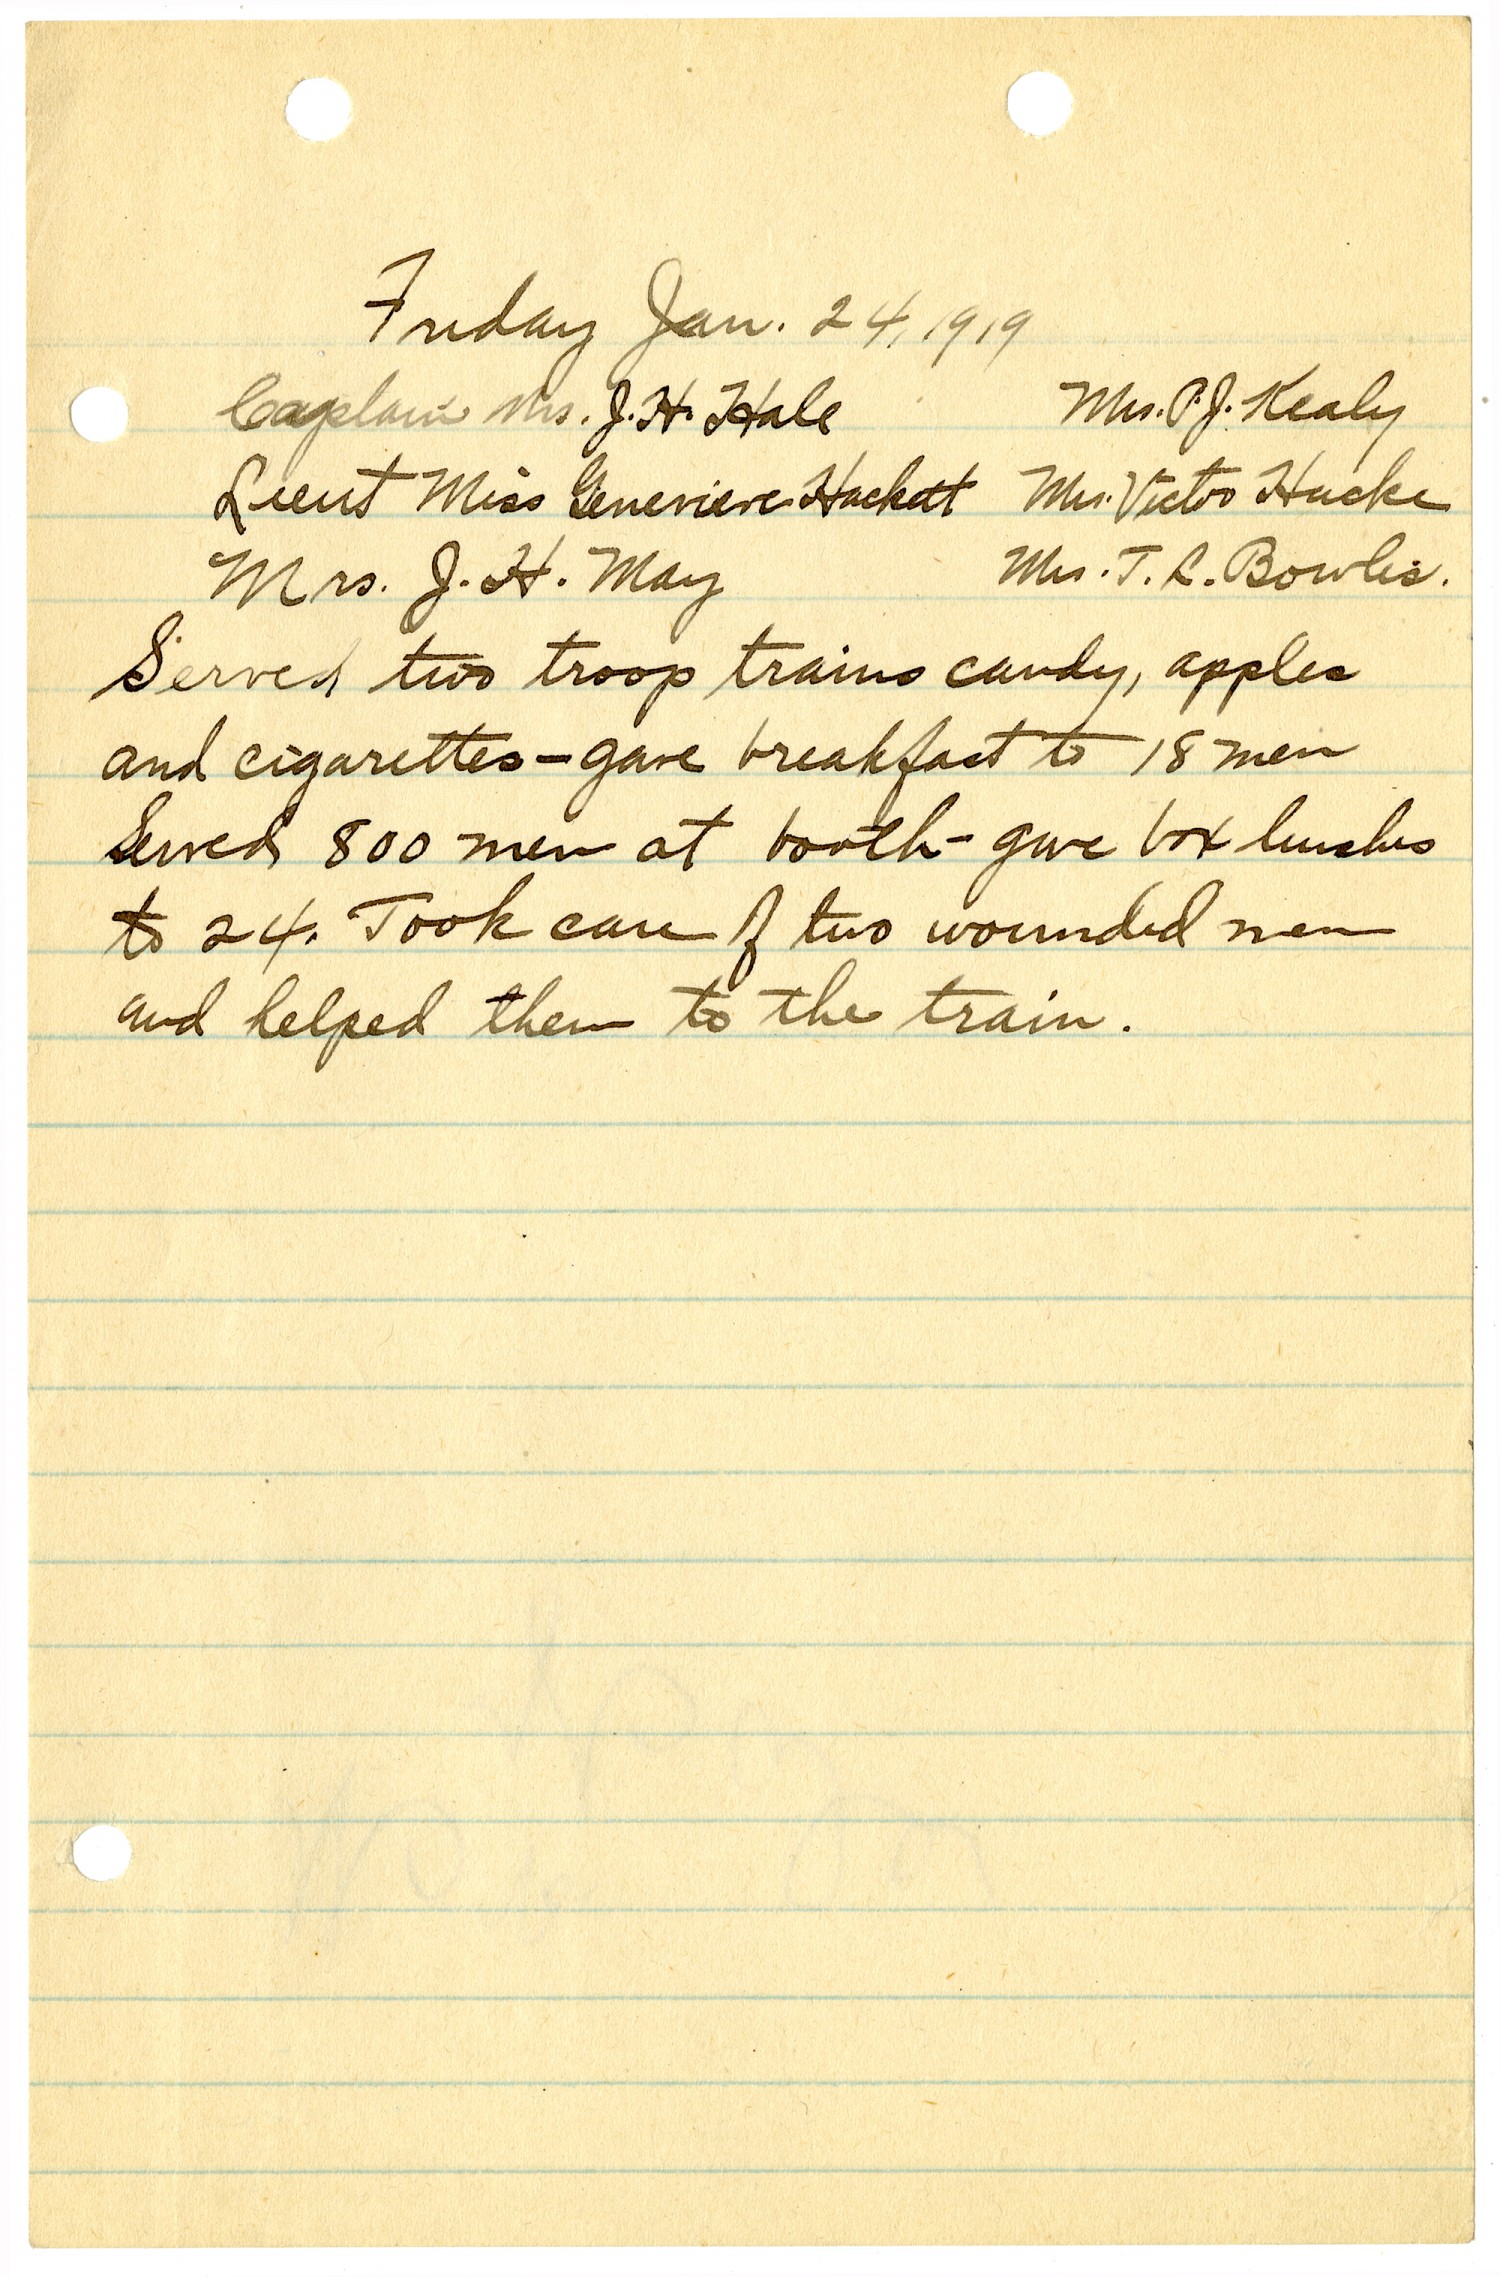 Friday Jan. 24, 1919
Captain Mrs. J. H. Hale Mrs. P. J. Kealy
Lieut Miss Genevieve Hackett Mrs. Victor Hacke
Mrs. J. H. May Mrs. T. L. Bowlis.
Served two troop trains candy, apples
and cigarettes – gave breakfast to 18 men
Served 800 men at booth – gave box lunches
to 24. Took care of two wounded men
and helped them to the train.